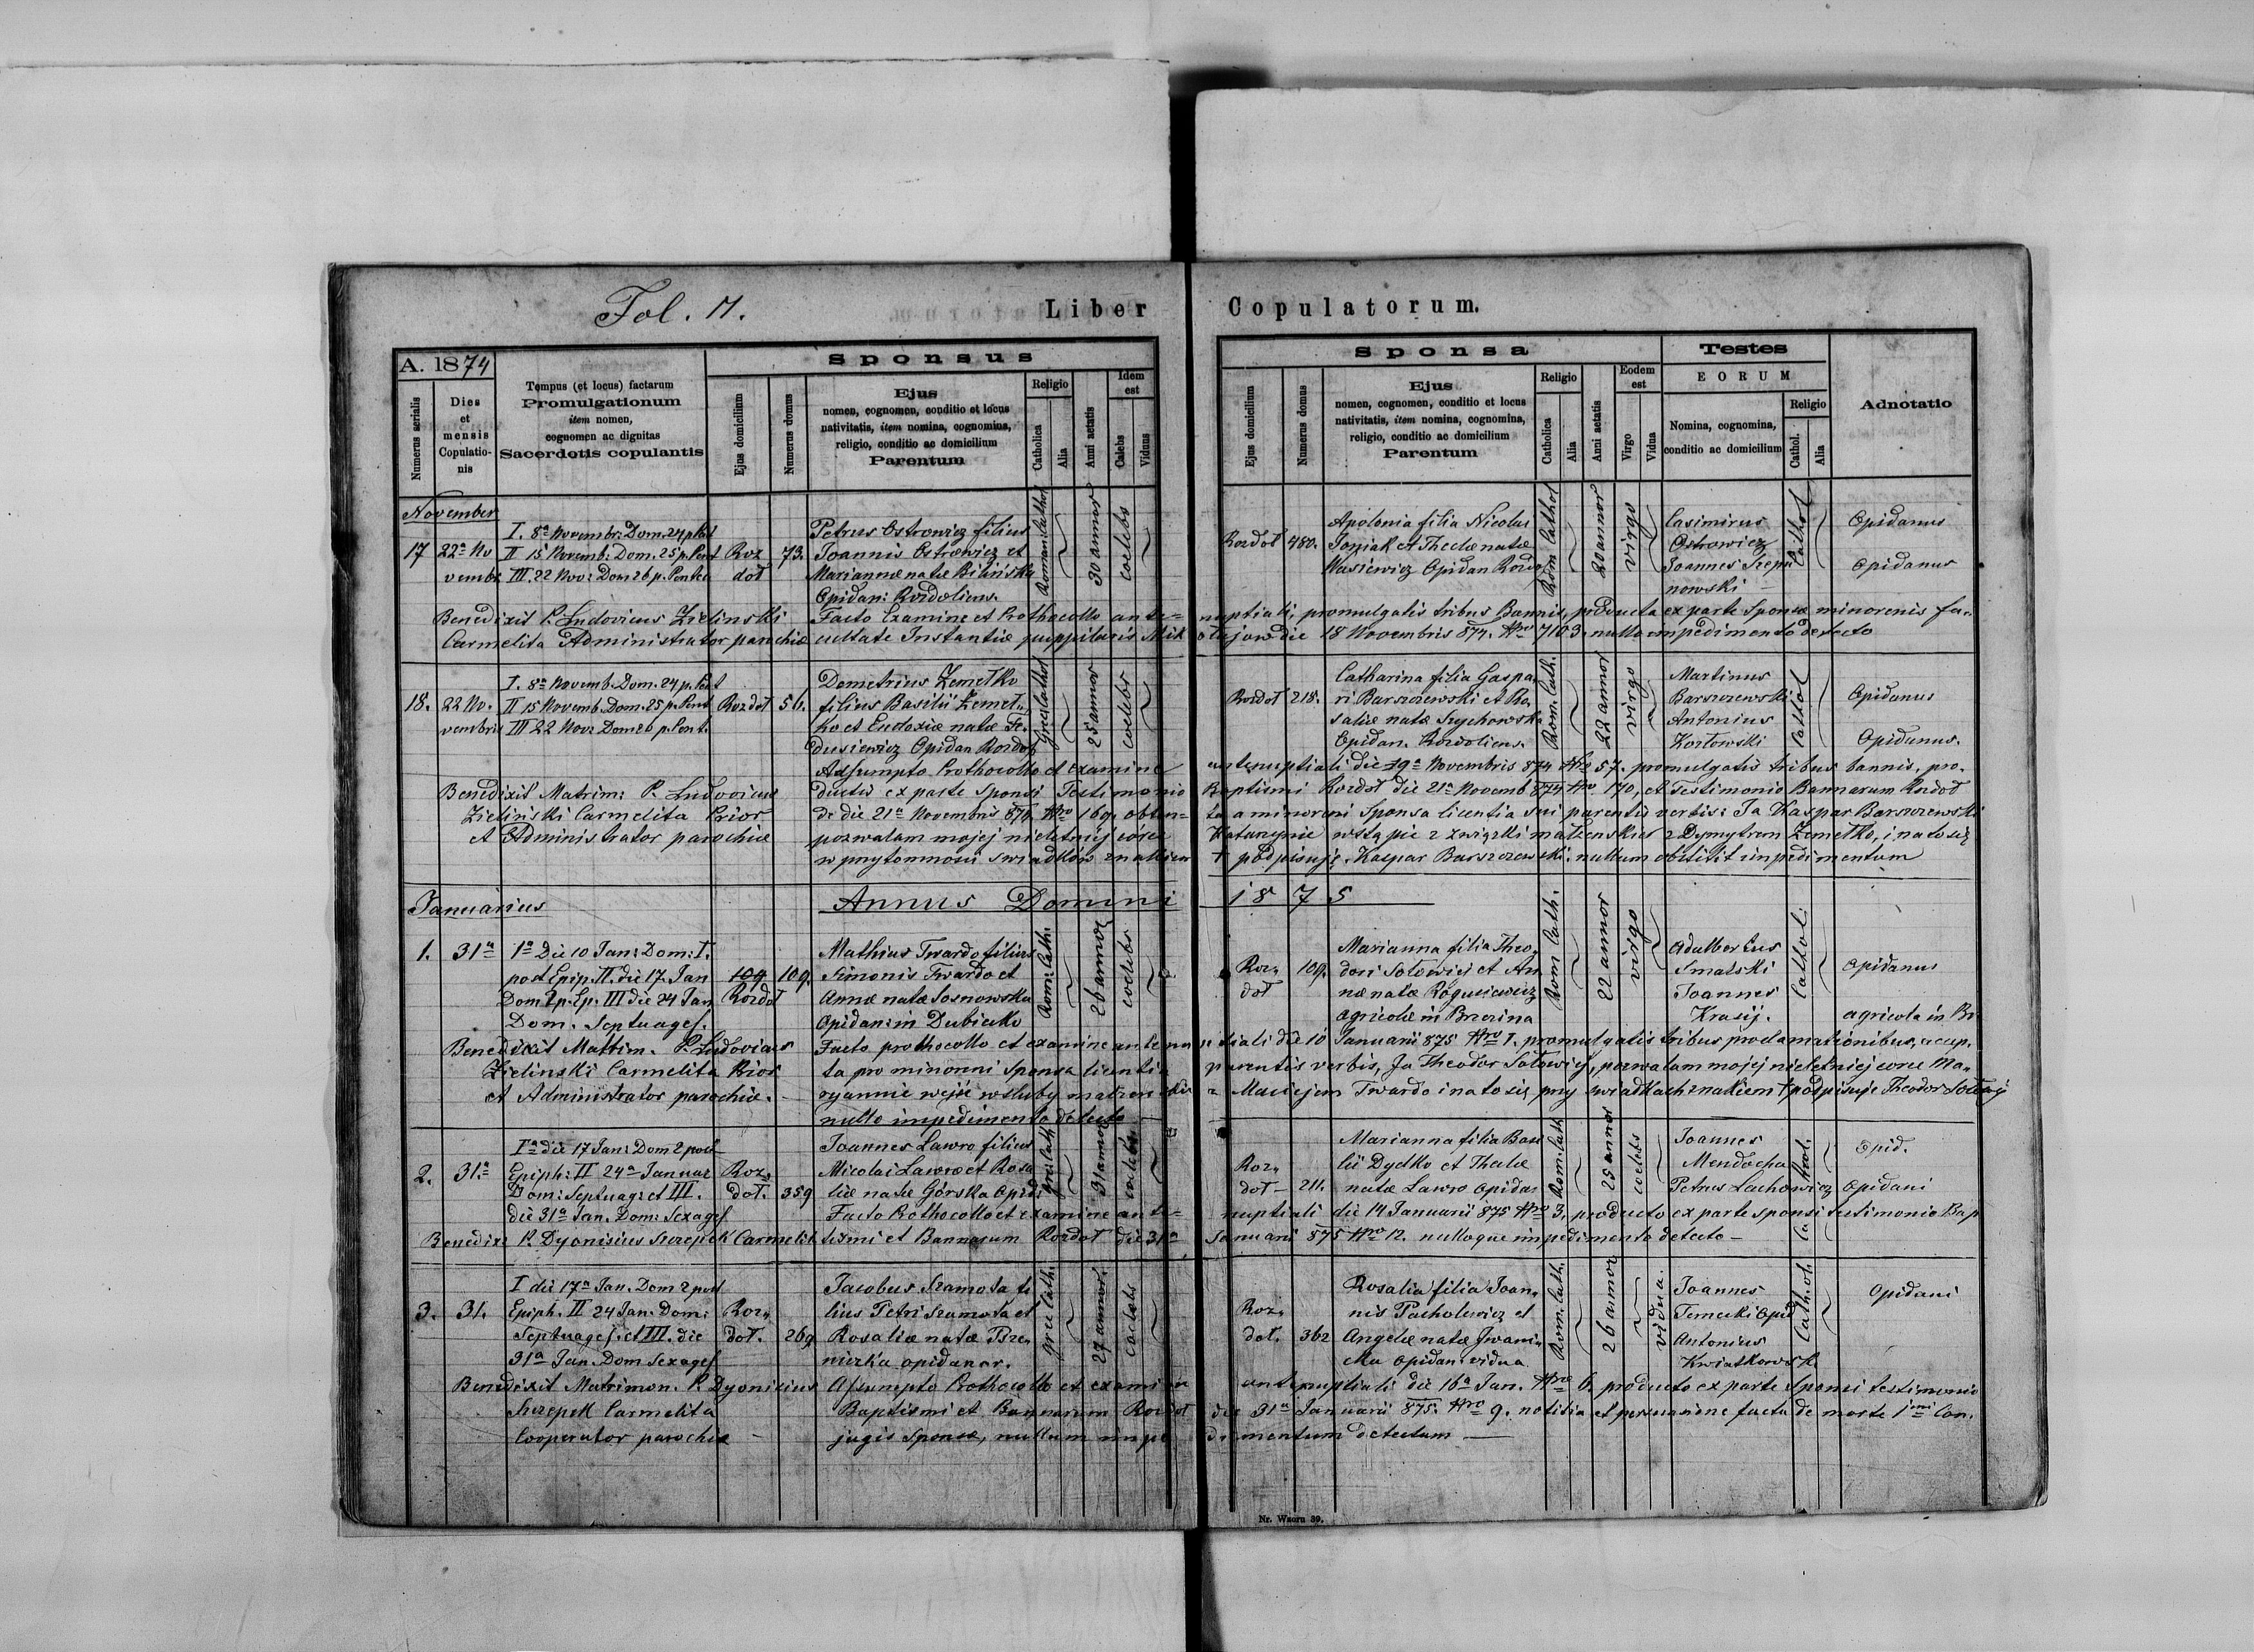 Fol. 11.
Liber Copulatorum.
A. 1874
Sponsus
Numerus serialis
Dies et mensis Copulationis
Tempus (et locus) factarum
Promulgationum
item nomen,
cognomen ac dignitas
Sacerdotis copulantis
Ejus domicilium
Numerus domus
Ejus
nomen, cognomen, conditio et locus
nativitatis, item nomina, cognomina,
religio, conditio ac domicilium
Parentum
Religio
Catholica
Alia
Anni aetatis
Idem est
Calebs
Viduus
Sponsa
Ejus domicilium
Numerus domus
Ejus
nomen, cognomen, conditio et locus
nativitatis, item nomina, cognomina,
religio, conditio ac domicilium
Parentum
Religio
Catholica
Alia
Anni aetatis
Eodem est
Virgo
Vidua
Testes
EORUM
Nomina, cognomina,
conditio ac domicilium
Religio
Cathol.
Alia
Adnotatio
November
17
22ª No
vembr
I. 8ª Novembr: Dom. 24 p Pet
II 15 Novemb: Dom. 25 p. Pent
III. 22 Nov: Dom 26 p. Pentec
Roz
doł
73.
Petrus Ostrowicz filius
Joannis Ostrowicz et
Mariannæ natæ Bilińska
Opidan: Rozdoliens.
Roman Cathol
30 annor
coelebs
Rozdoł
480.
Apolonia filia Nicolai
Joniak et Theclæ natæ
Wasiewicz Opidan Rozdo
Rom Cathol
20 annor
virgo
Casimirus
Ostrowicz
Joannes Szepa
nowski
Cathol
Opidanus
Opidanus
Benedixit P. Ludovicus Zielinski
Carmelita Administrator parochiæ
Facto Examine et Prothocollo ante= nuptiali, promulgatis tribus Bannis, producta ex parte Sponsæ minorenis fa=
cultate Instantiæ puppilaris Mik ołajow die 18 Novembris 874. Nro 7103. nullo impedimento detecto
18.
22 No.
vembris
I. 8ª Novemb. Dom. 24 p. Pent
II 15 Novemb. Dom. 25 p. Pent
III 22 Nov: Dom 26 p. Pent.
Rozdoł
56.
Demetrius Zemełko
filius Basilii Zemeł=
ko et Eudoxiæ natæ Fe=
dusiewicz Opidan Rozdoł
Græc Cathol
25 annor
coelebs
Rozdoł
218.
Catharina filia Gaspa=
ri Barszczewski et Ro=
saliæ natæ Szychowska
Opidan. Rozdoliens.
Rom. Cath.
22 annor
virgo
Martinus
Barszczewski
Antonius
Kozłowski
Cathol
Opidanus
Opidanus.
Benedixit Matrim: P. Ludovicus
Zieliński Carmelita Prior
et Administrator parochiæ
Adsumpto Prothocollo et examine antenuptiali die 19ª Novembris 874 Nro 57. promulgatis tribus bannis, pro=
ductis ex parte Sponsi Testimonio Baptismi Rozdoł die 21ª Novemb 874 Nro 170, et Testimonio Bannarum Rozdoł
de die 21ª Novembris 874 Nro 169. obten= ta a minoreni Sponsa licentia sui parentis verbis: Ja Kaspar Barszczewski
pozwalam mojej nieletniej córce Katarzynie wstąpić w związki małżeńskie z Dymytrem Zemełko, i na to się
w przytomności świadków znakiem † podpisuję. Kaspar Barszczewski. nullum obstitit impedimentum
Januarius
Annus Domini 1875
1.
31ª
1ª Die 10 Jan: Dom: I.
post Epip. II. die 17. Jan
Dom 2 p. Ep. III die 24 Jan
Dom. Septuages.
109
Rozdoł
109.
Mathius Twardo filius
Simonis Twardo et
Annæ natæ Sosnowska
Opidan: in Dubiecko
Rom: Cath.
26 annor
coelebs
Roz=
doł
109.
Marianna filia Theo=
dori Sołowiej et An
næ natæ Rogusiewicz
Agricolæ in Brzezina
Rom Cath.
22 annor
virgo
Adalbertus
Smalski
Joannes
Krasij.
Cathol.
Opidanus
agricola in Br
Benedixit Matrim. P. Ludovicus
Zielinski Carmelita Prior
et Administrator parochiæ.
Facto prothocollo et examine antenu ptiali die 10 Januarii 875 Nro 1. promulgatis tribus proclamationibus, accep.
ta pro minoreni sponsa licentia parentis verbis, Ja Theodor Sołowiej, pozwalam mojej nieletniej córce Ma=
ryannie wejść w śluby małżeńskie z Maciejem Twardo i na to się przy świadkach znakiem † podpisuję Theodor Sołowij
nullo impedimento detecto
2.
31.ª
Iª die 17 Jan: Dom 2 post
Epiph: II 24ª Januar
Dom: Septuag: et III.
die 31ª Jan. Dom: Sexages
Roz=
doł.
359
Joannes Lawro filius
Nicolai Lawro et Rosa
liæ natæ Górska Opid:
græc: cath
31 annor
coelebs
Roz=
doł –
211.
Marianna filia Basi
lii Dydko et Theclæ
natæ Lawro opidan
Rom. Cath
25 annor
coelebs
Joannes
Mendocha
Petrus Lachowicz
Cathol.
Opid.
Opidani
Benedixi P. Dyonisius Szczepek Carmelit
Facto Prothocollo et examine ante= nuptiali die 14 Januarii 875 Nro 3, producto ex parte sponsi testimonio Bap
tismi et Bannarum Rozdoł die 31ª Januarii 875 Nro 12. nulloque impedimento detecto –
3.
31.
I die 17ª Jan. Dom 2 post
Epiph. II 24 Jan: Dom:
Septuages. et III. die
31ª Jan. Dom Sexages
Roz=
doł.
269
Jacobus Szamota fi
lius Petri Szamota et
Rosaliæ natæ Brze=
nizka opidanor.
græc Cath.
27 annor.
coelebs
Roz=
doł.
362
Rosalia filia Joan=
nis Pacholewicz et
Angelæ natæ Iwani=
cka Opidan. vidua
Rom. Cath.
26 annor
vidua.
Joannes
Temecki Opid
Antonius
Kwiatkowsk.
Cathol.
Opidani
Benedixit Matrimon. P. Dyonisius
Szczepek Carmelita
Cooperator parochiæ –
Assumpto Prothocollo et examine antenuptiali die 16ª Jan. Nro 6. producto ex parte Sponsi testimonio
Baptismi et Bannarum Rozdoł die 31ª Januarii 875. Nro 9. notitia et persuasione facta de morte 1mi Con.
jugis Sponsæ, nullum impe dimentum detectum –
Nr. Wzoru 30.